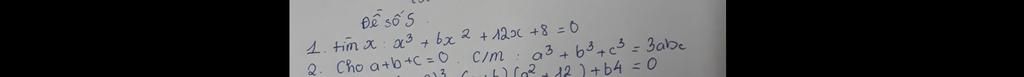 Đề số 5
1. tìm x : x³ + 6x² + 12x + 8 = 0
2. Cho a+b+c = 0. C/m : a³ + b³ + c³ = 3abc
(a² + 12) + 64 = 0